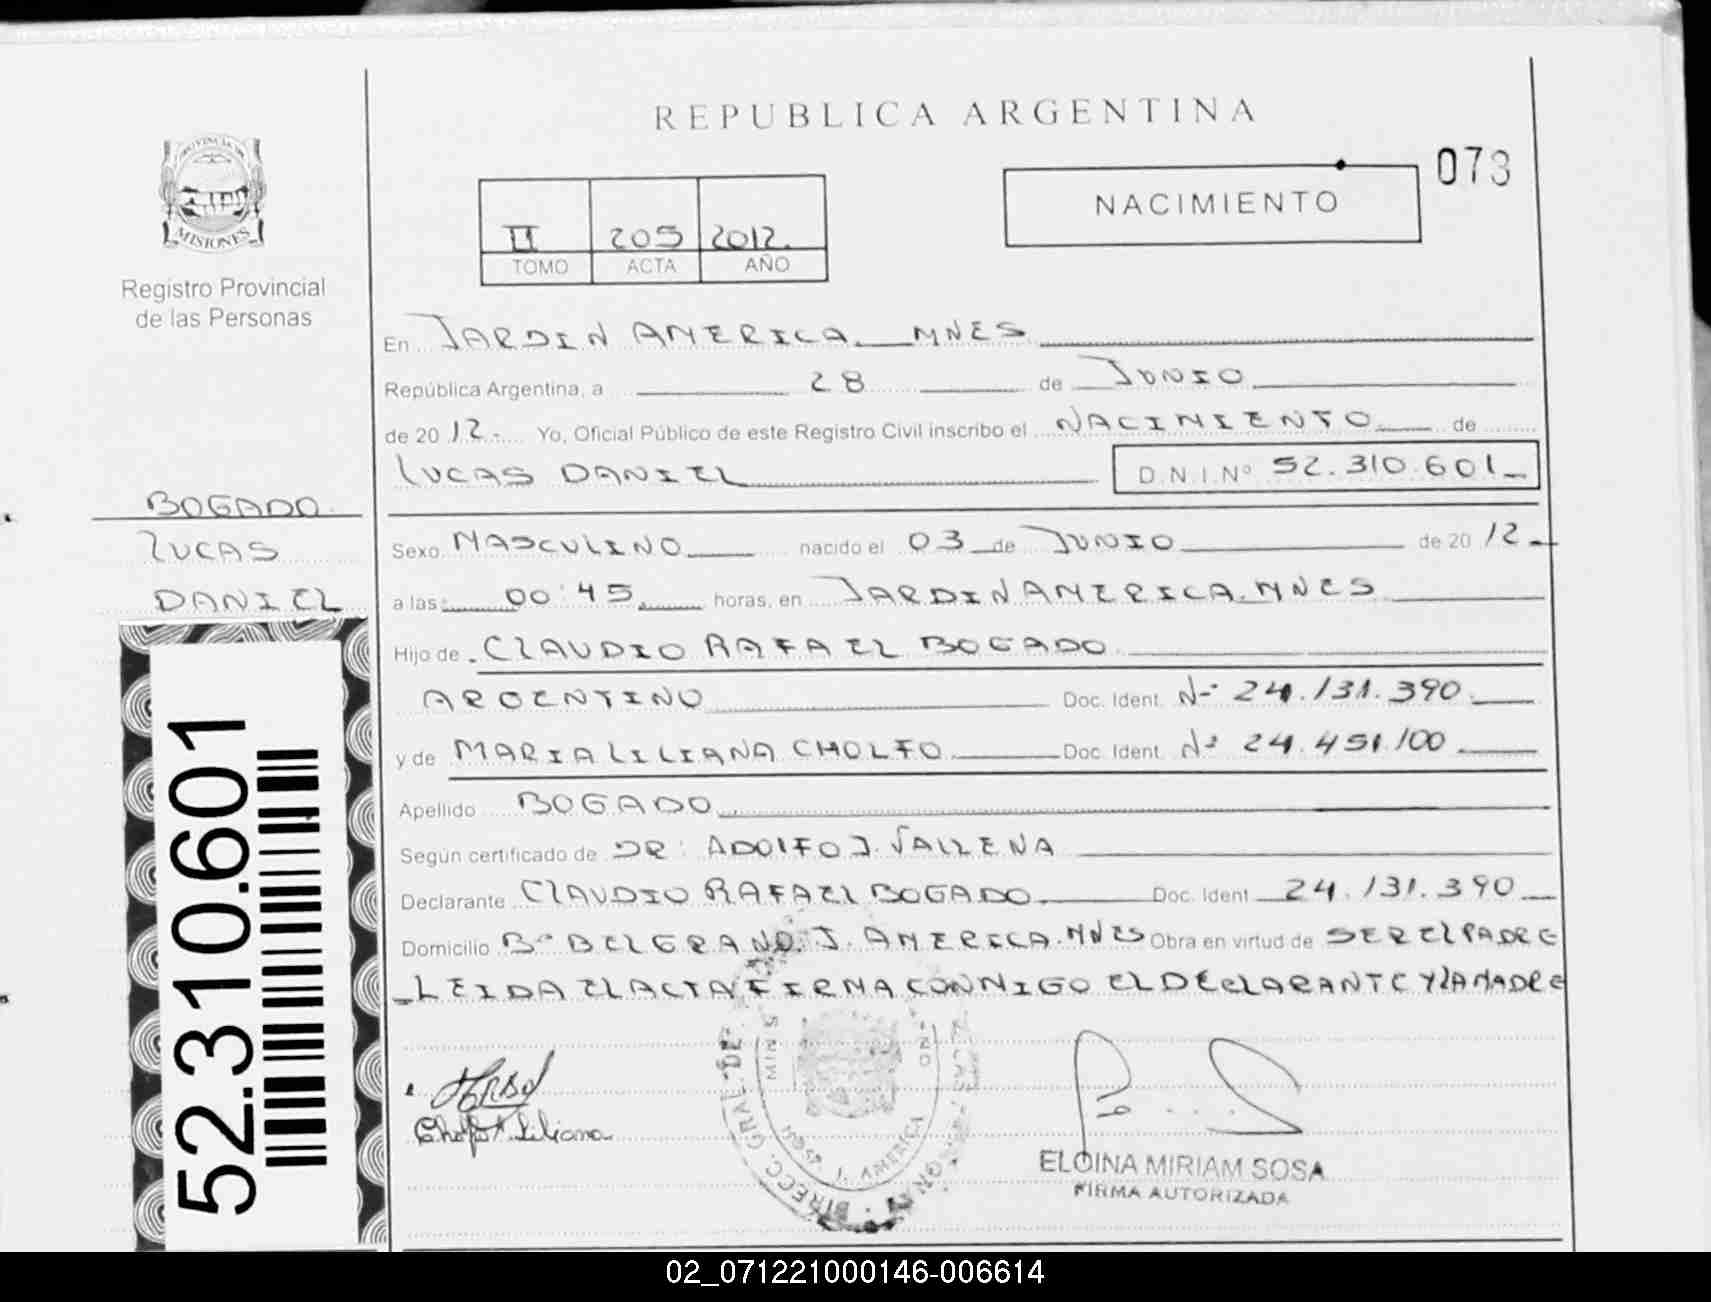 REPUBLICA ARGENTINA
073
NACIMIENTO
PROVINCIA DE
MISIONES
Registro Provincial
de las Personas
II 205 2012.
TOMO ACTA AÑO
En JARDIN AMERICA. MNES
República Argentina, a 28 de JUNIO
de 2012.- Yo, Oficial Público de este Registro Civil inscribo el NACIMIENTO de
LUCAS DANIEL D.N.I.Nº 52.310.601
BOGADO
LUCAS
DANIEL
Sexo MASCULINO nacido el 03 de JUNIO de 2012
a las 00:45 horas, en JARDIN AMERICA. MNES
Hijo de CLAUDIO RAFAEL BOGADO
ARGENTINO Doc. Ident. Nº 24.131.390
y de MARIA LILIANA CHOLFO Doc. Ident. Nº 24.451.100
Apellido BOGADO
Según certificado de DR: ADOLFO J. VALLENA
Declarante CLAUDIO RAFAEL BOGADO Doc. Ident 24.131.390
Domicilio Bº BELGRANO. J. AMERICA. MNES Obra en virtud de SER EL PADRE
LEIDA EL ACTA FIRMA CONMIGO EL DECLARANTE Y LA MADRE
52.310.601
DIRECC. GRAL. DE
J. AMERICA
Liliana
ELOINA MIRIAM SOSA
FIRMA AUTORIZADA
02_071221000146-006614